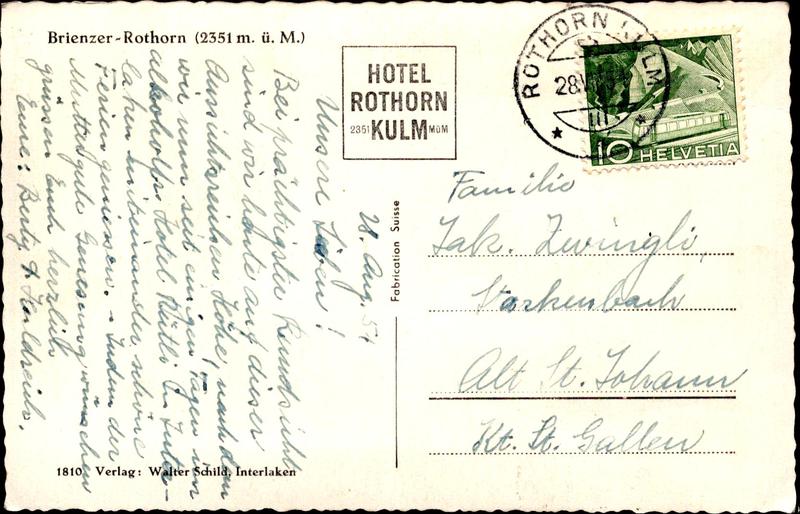 Brienzer-Rothorn (2351 m. ü. M.)
HOTEL
ROTHORN
2351 KULM MÜM
ROTHORN KULM
28.VIII
10 HELVETIA
28. Aug. 51
Unsere Lieben!
Bei prächtigster Rundsicht
sind wir heute auf dieser
Aussichtsreichen Höhe, nachdem
wir nun seit einigen Tagen im
alkoholfr. Hotel Rütli in Inter-
laken mitsammen schöne
Ferien geniessen. - Indem der
Mutter gute Genesung wünschen
grüssen Euch herzlich
Eure: Berty &
Fabrication Suisse
Familie
Jak. Zwingli,
Starkenbach
Alt St. Johann
Kt. St. Gallen
1810 Verlag: Walter Schild, Interlaken